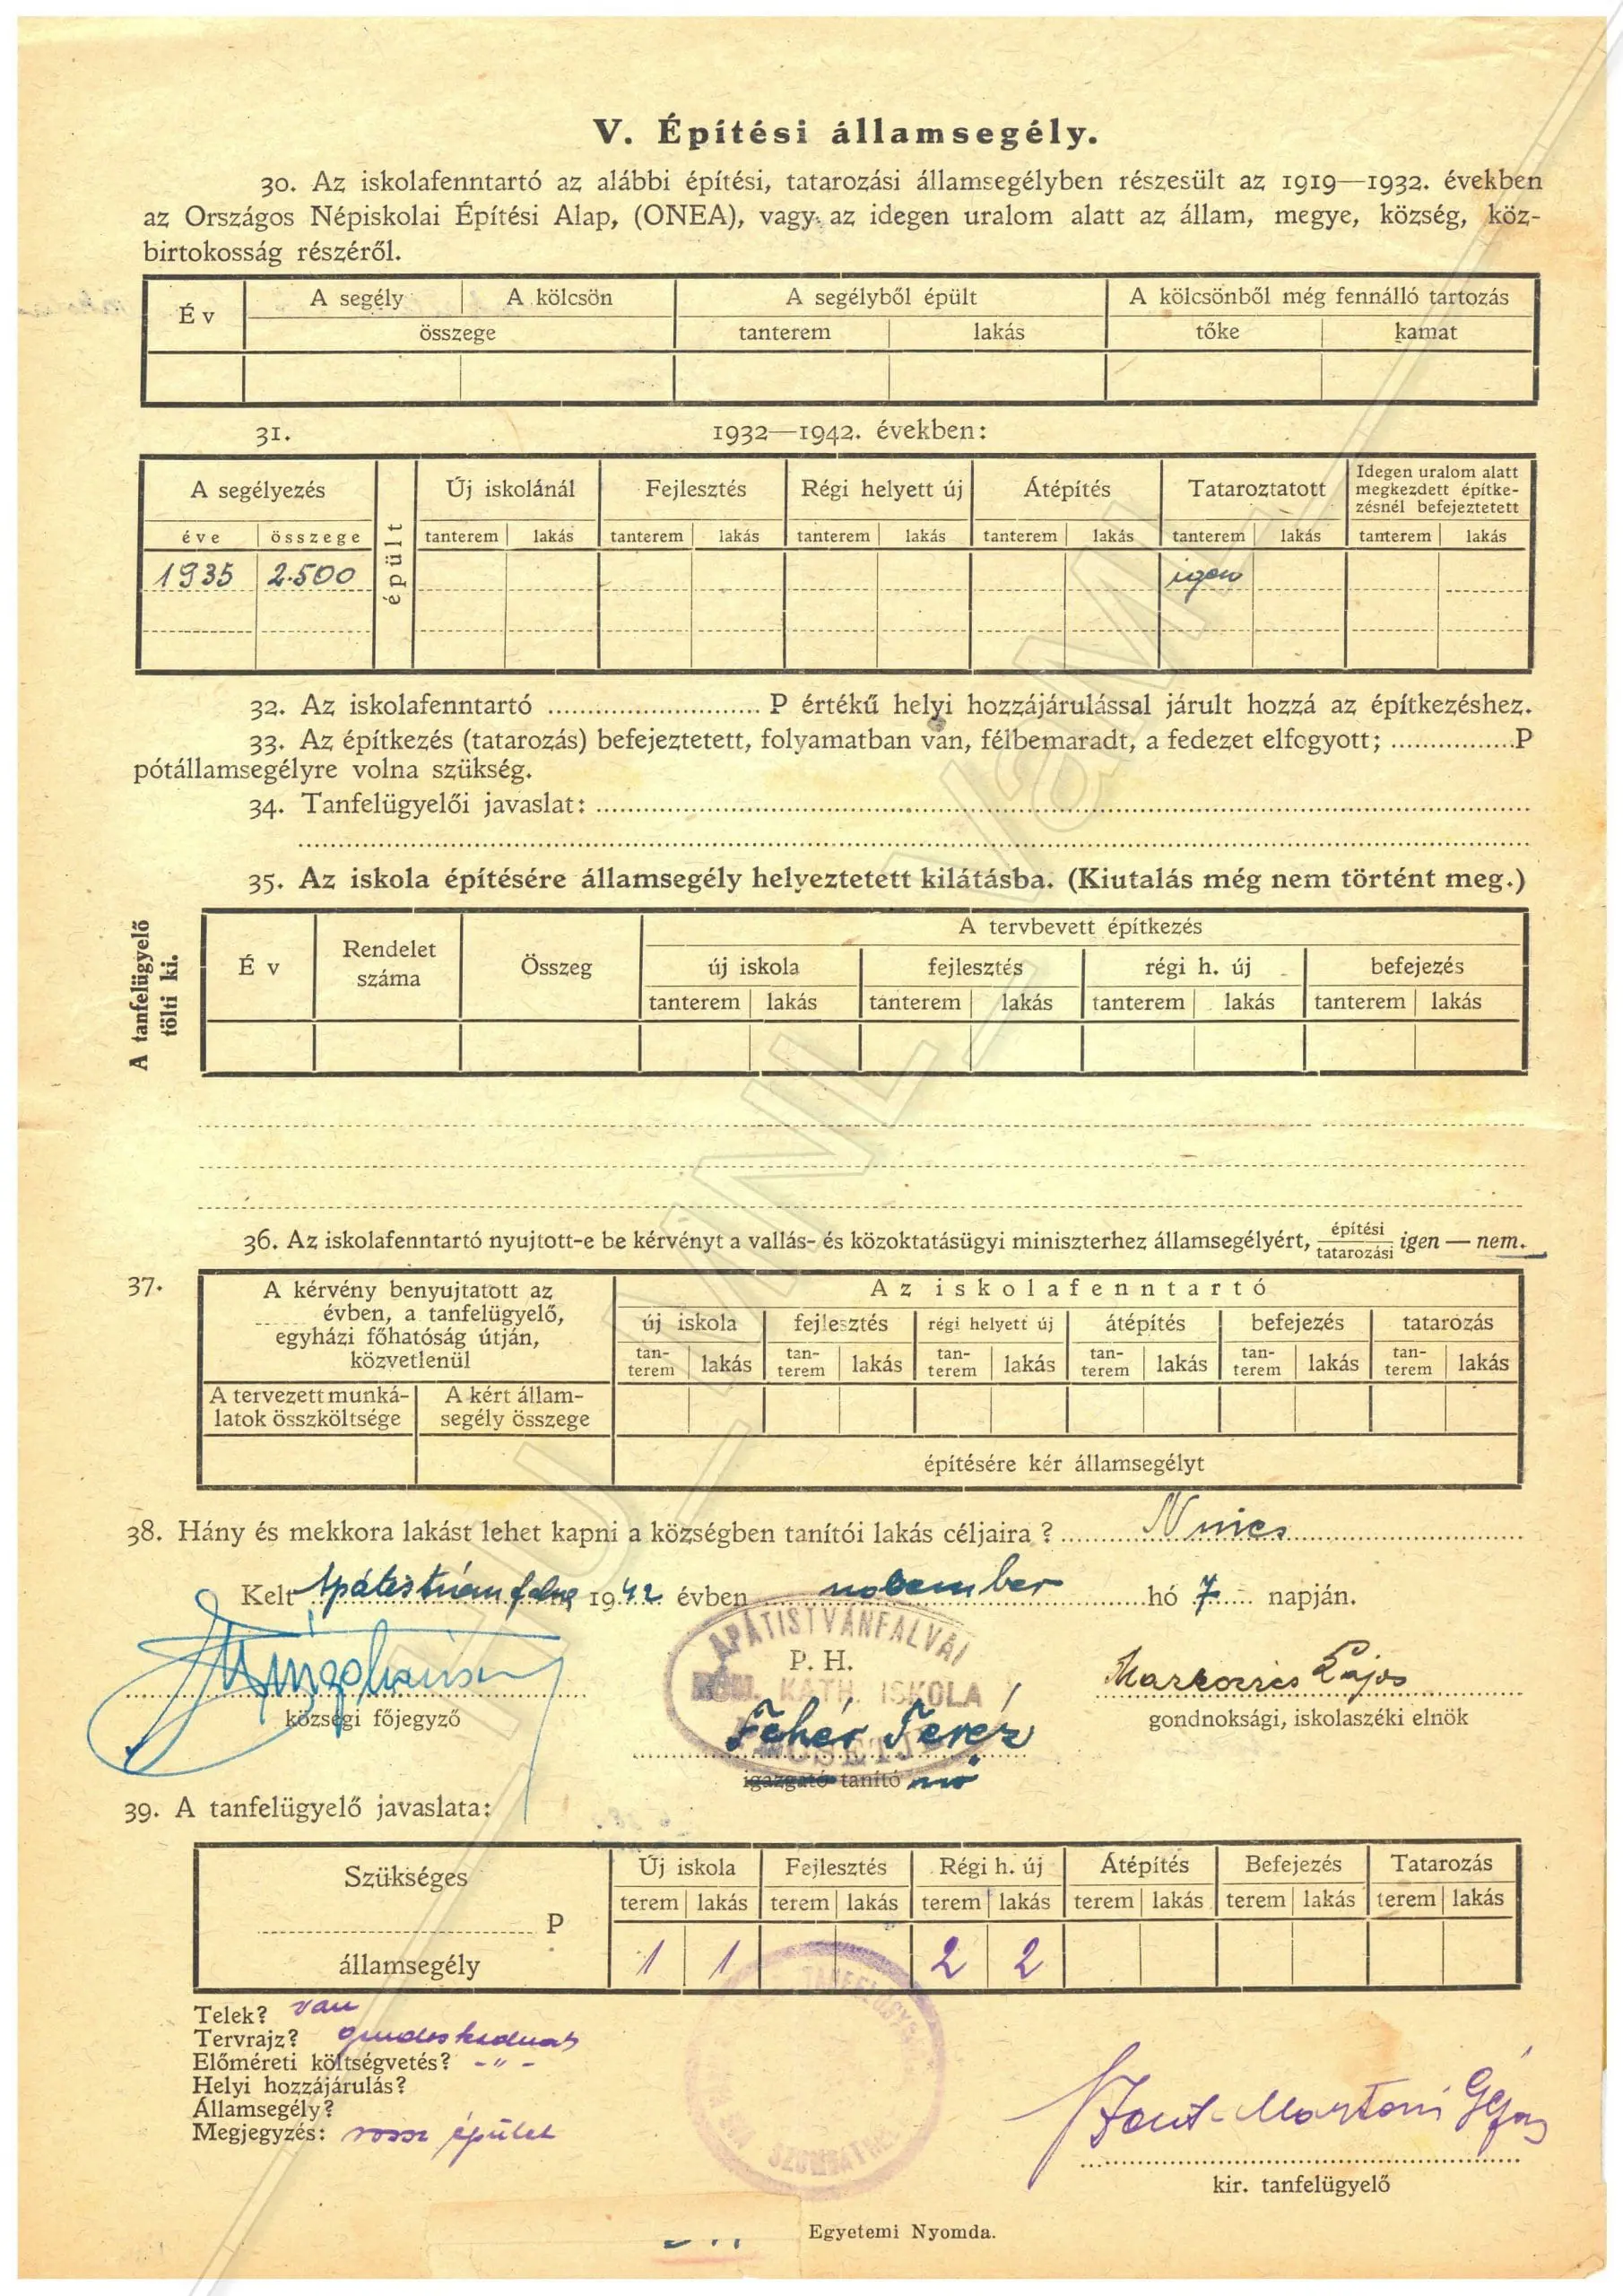 V. Építési államsegély.
30. Az iskolafenntartó az alábbi építési, tatarozási államsegélyben részesült az 1919—1932. években
az Országos Népiskolai Építési Alap, (ONEA), vagy az idegen uralom alatt az állam, megye, község, köz-
birtokosság részéről.
Év A segély A kölcsön A segélyből épült A kölcsönből még fennálló tartozás
összege tanterem lakás tőke kamat
31. 1932—1942. években:
A segélyezés épült Új iskolánál Fejlesztés Régi helyett új Átépítés Tataroztatott Idegen uralom alatt
megkezdett építke-
zésnél befejeztetett
éve összege tanterem lakás tanterem lakás tanterem lakás tanterem lakás tanterem lakás tanterem lakás
1935 2.500 igen
32. Az iskolafenntartó P értékű helyi hozzájárulással járult hozzá az építkezéshez.
33. Az építkezés (tatarozás) befejeztetett, folyamatban van, félbemaradt, a fedezet elfogyott; P
pótállamsegélyre volna szükség.
34. Tanfelügyelői javaslat:
35. Az iskola építésére államsegély helyeztetett kilátásba. (Kiutalás még nem történt meg.)
A tanfelügyelő
tölti ki.
A tervbevett építkezés
Év Rendelet
száma Összeg új iskola fejlesztés régi h. új befejezés
tanterem lakás tanterem lakás tanterem lakás tanterem lakás
36. Az iskolafenntartó nyujtott-e be kérvényt a vallás- és közoktatásügyi miniszterhez államsegélyért, építési
tatarozási igen — nem.
37. A kérvény benyujtatott az
évben, a tanfelügyelő,
egyházi főhatóság útján,
közvetlenül
Az iskolafenntartó
új iskola fejlesztés régi helyett új átépítés befejezés tatarozás
tan-
terem lakás tan-
terem lakás tan-
terem lakás tan-
terem lakás tan-
terem lakás tan-
terem lakás
A tervezett munká-
latok összköltsége A kért állam-
segély összege
építésére kér államsegélyt
38. Hány és mekkora lakást lehet kapni a községben tanítói lakás céljaira? Nincs
Kelt Apátistvánfalva 1942 évben november hó 7 napján.
APÁTISTVÁNFALVAI
P. H.
RÓM. KATH. ISKOLA
Markovics Lajos
községi főjegyző
gondnoksági, iskolaszéki elnök
Fehér Teréz
igazgató tanító nő
39. A tanfelügyelő javaslata:
Szükséges
P
államsegély
Új iskola Fejlesztés Régi h. új Átépítés Befejezés Tatarozás
terem lakás terem lakás terem lakás terem lakás terem lakás terem lakás
1 1 2 2
Telek? van
Tervrajz?
Előméreti költségvetés? - " -
Helyi hozzájárulás?
Államsegély?
Megjegyzés: rossz épület
kir. tanfelügyelő
Egyetemi Nyomda.
HU_MNL_VaML